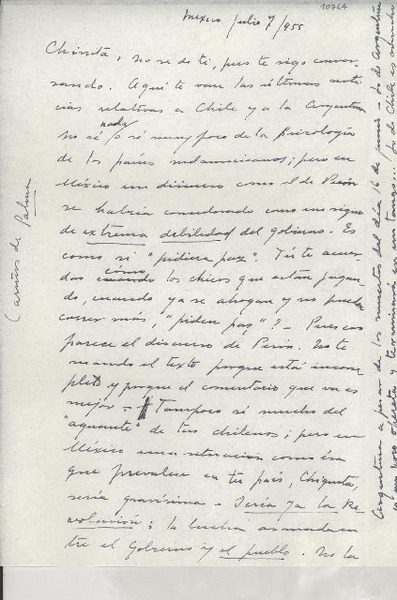 10764
Mexico julio 7/955
Chiquita, no se de ti, pero te sigo conver-
sando. Aquí te van las últimas noti-
cias relativas a Chile y a la Argentina
nada
No sé o sé muy poco de la Psicología
de los países sudamericanos; pero en
México un discurso como el de Perón
se habría considerado como un signo
de extrema debilidad del gobierno. Es
como si "pidiera paz". Tú te acuer-
das cómo los chicos que están jugan-
do, cuando ya se ahogan y no pueden
correr más, "piden paz"? - Pues eso
parece el discurso de Perón. No te
mando el texto porque está incom-
pleto y porque el comentario que va es
mejor - Tampoco sé mucho del
"aguante" de los chilenos; pero en
México una situación como ésa
que prevalece en tu país, Chiquita,
sería gravísima - Sería ya la Re-
volución; la lucha armada en-
tre el Gobierno y el pueblo. No la
Cariños de Palma
Argentina a pesar de los muertos del día 16 de junio - Lo de Argentina
es una opereta y terminará en un tango... Lo de Chile es